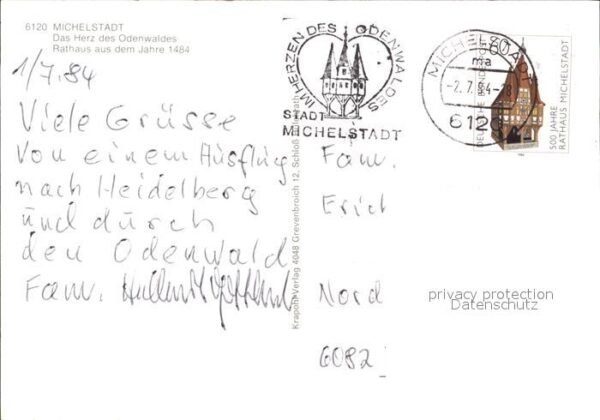 6120 MICHELSTADT
Das Herz des Odenwaldes
Rathaus aus dem Jahre 1484
1/7.84
Viele Grüsse
von einem Ausflug
nach Heidelberg
und durch
den Odenwald
Fam.
IM HERZEN DES ODENWALDES
STADT
MICHELSTADT
MICHELSTADT
ma
-2.7.84-18
6120
60
DEUTSCHE BUNDESPOST
500 JAHRE
RATHAUS MICHELSTADT
Krapohl-Verlag 4048 Grevenbroich 12, Schloß
Fam.
Erich
Nord
6082
privacy protection
Datenschutz